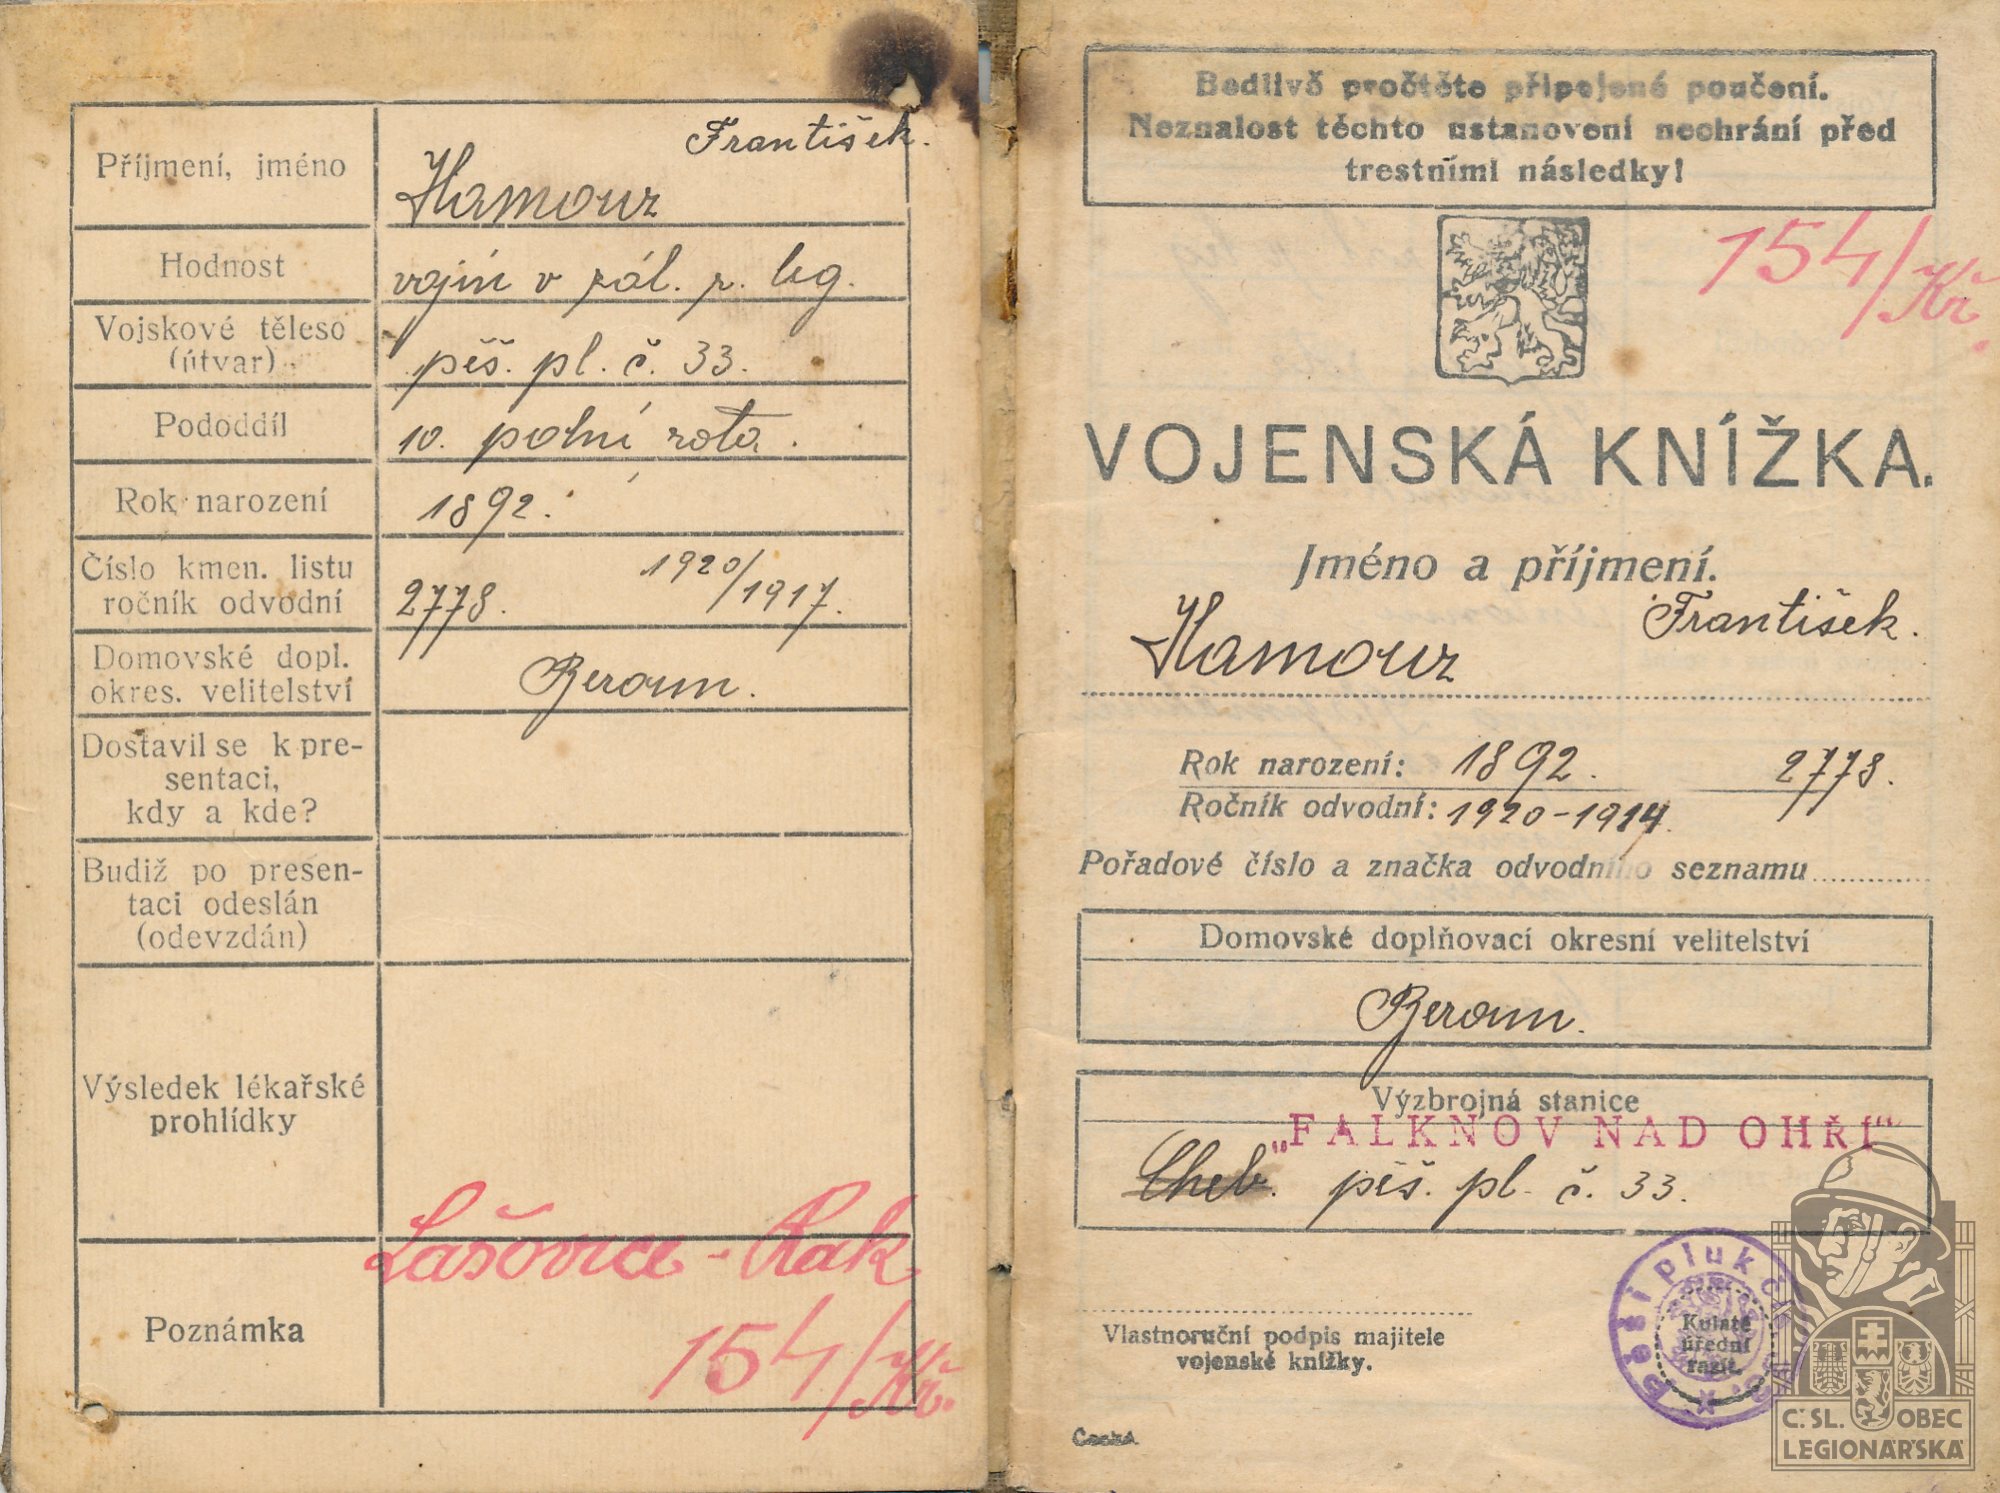 Příjmení, jméno
František.
Hamouz
Hodnost
vojín v zál. r. leg.
Vojskové těleso
(útvar)
pěš. pl. č. 33.
Pododdíl
10. polní rota.
Rok narození
1892.
Číslo kmen. listu
ročník odvodní
2778. 1920/1917.
Domovské dopl.
okres. velitelství
Beroun.
Dostavil se k pre-
sentaci,
kdy a kde?
Budiž po presen-
taci odeslán
(odevzdán)
Výsledek lékařské
prohlídky
Lašovice - Rak
Poznámka
154/Kř.
Bedlivě pročtěte připojené poučení.
Neznalost těchto ustanovení nechrání před
trestními následky!
154/Kř.
VOJENSKÁ KNÍŽKA.
Jméno a příjmení.
František.
Hamouz
Rok narození: 1892. 2778.
Ročník odvodní: 1920-1914.
Pořadové číslo a značka odvodního seznamu
Domovské doplňovací okresní velitelství
Beroun.
Výzbrojná stanice
„FALKNOV NAD OHŘÍ“
Cheb. pěš. pl. č. 33.
Vlastnoruční podpis majitele
vojenské knížky.
Pěší pluk č.
Kulaté
úřední
razít.
Česká.
Č. SL. OBEC
LEGIONÁŘSKÁ